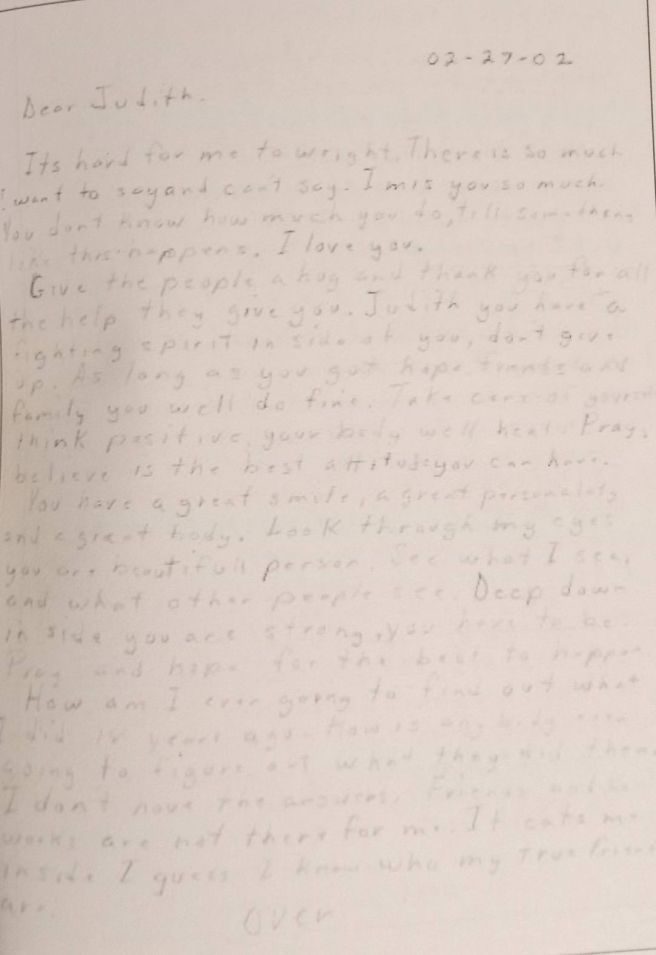 02-27-02
Dear Judith.
Its hard for me to wright. There is so much
I want to say and can't say. I mis you so much.
You don't know how much you do, till something
like this happens. I love you.
Give the people a hug and thank you for all
the help they give you. Judith you have a
fighting spirit in side of you, don't give
up. As long as you got hope friends and
family you well do fine. Take care of
think positive, your body well heal. Pray,
believe is the best attitude you can have.
You have a great smile, a great personalaty
and a great body. Look through my eyes
you are beautifull person. See what I see,
and what other people see. Deep down
in side you are strong, you have to be.
Pray and hope for the best to happen
How am I ever going to find out what
I did years ago. How is any body ever
going to figure out what they did then
I don't have the answers. Friends
works are not there for me. It eats me
inside I guess I know who my true friends
are.
over